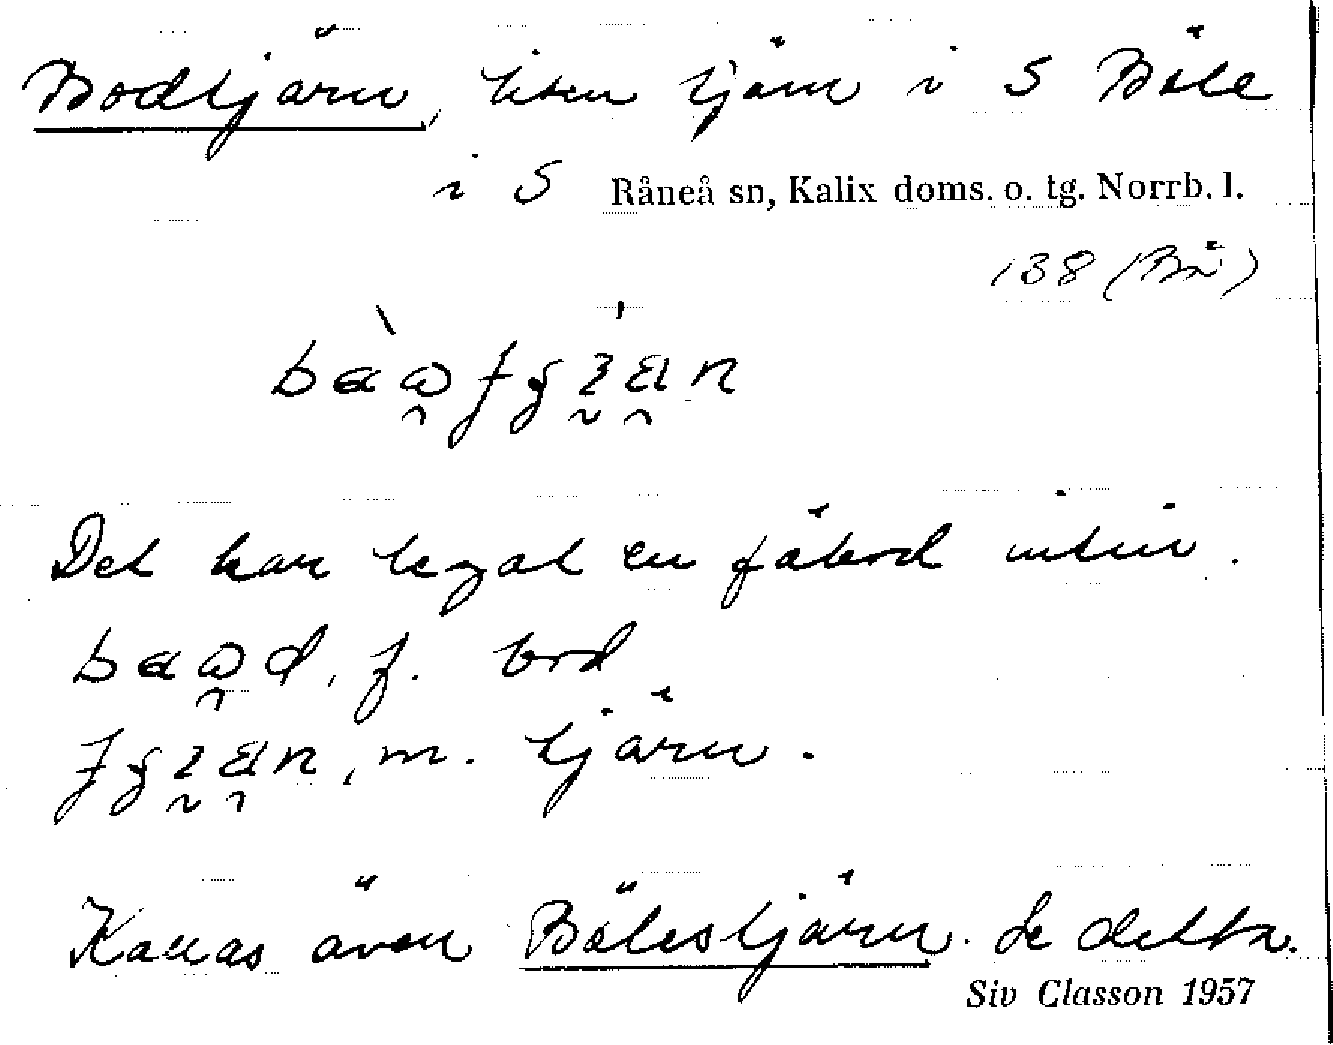 Bodtjärn, liten tjärn i S Böle
i S Råneå sn, Kalix doms. o. tg. Norrb. l.
138 (Bä)
Det har legat en fäbod intill.
f. bod
m. tjärn.
Kallas även Bölestjärn. Se detta.
Siv Classon 1957